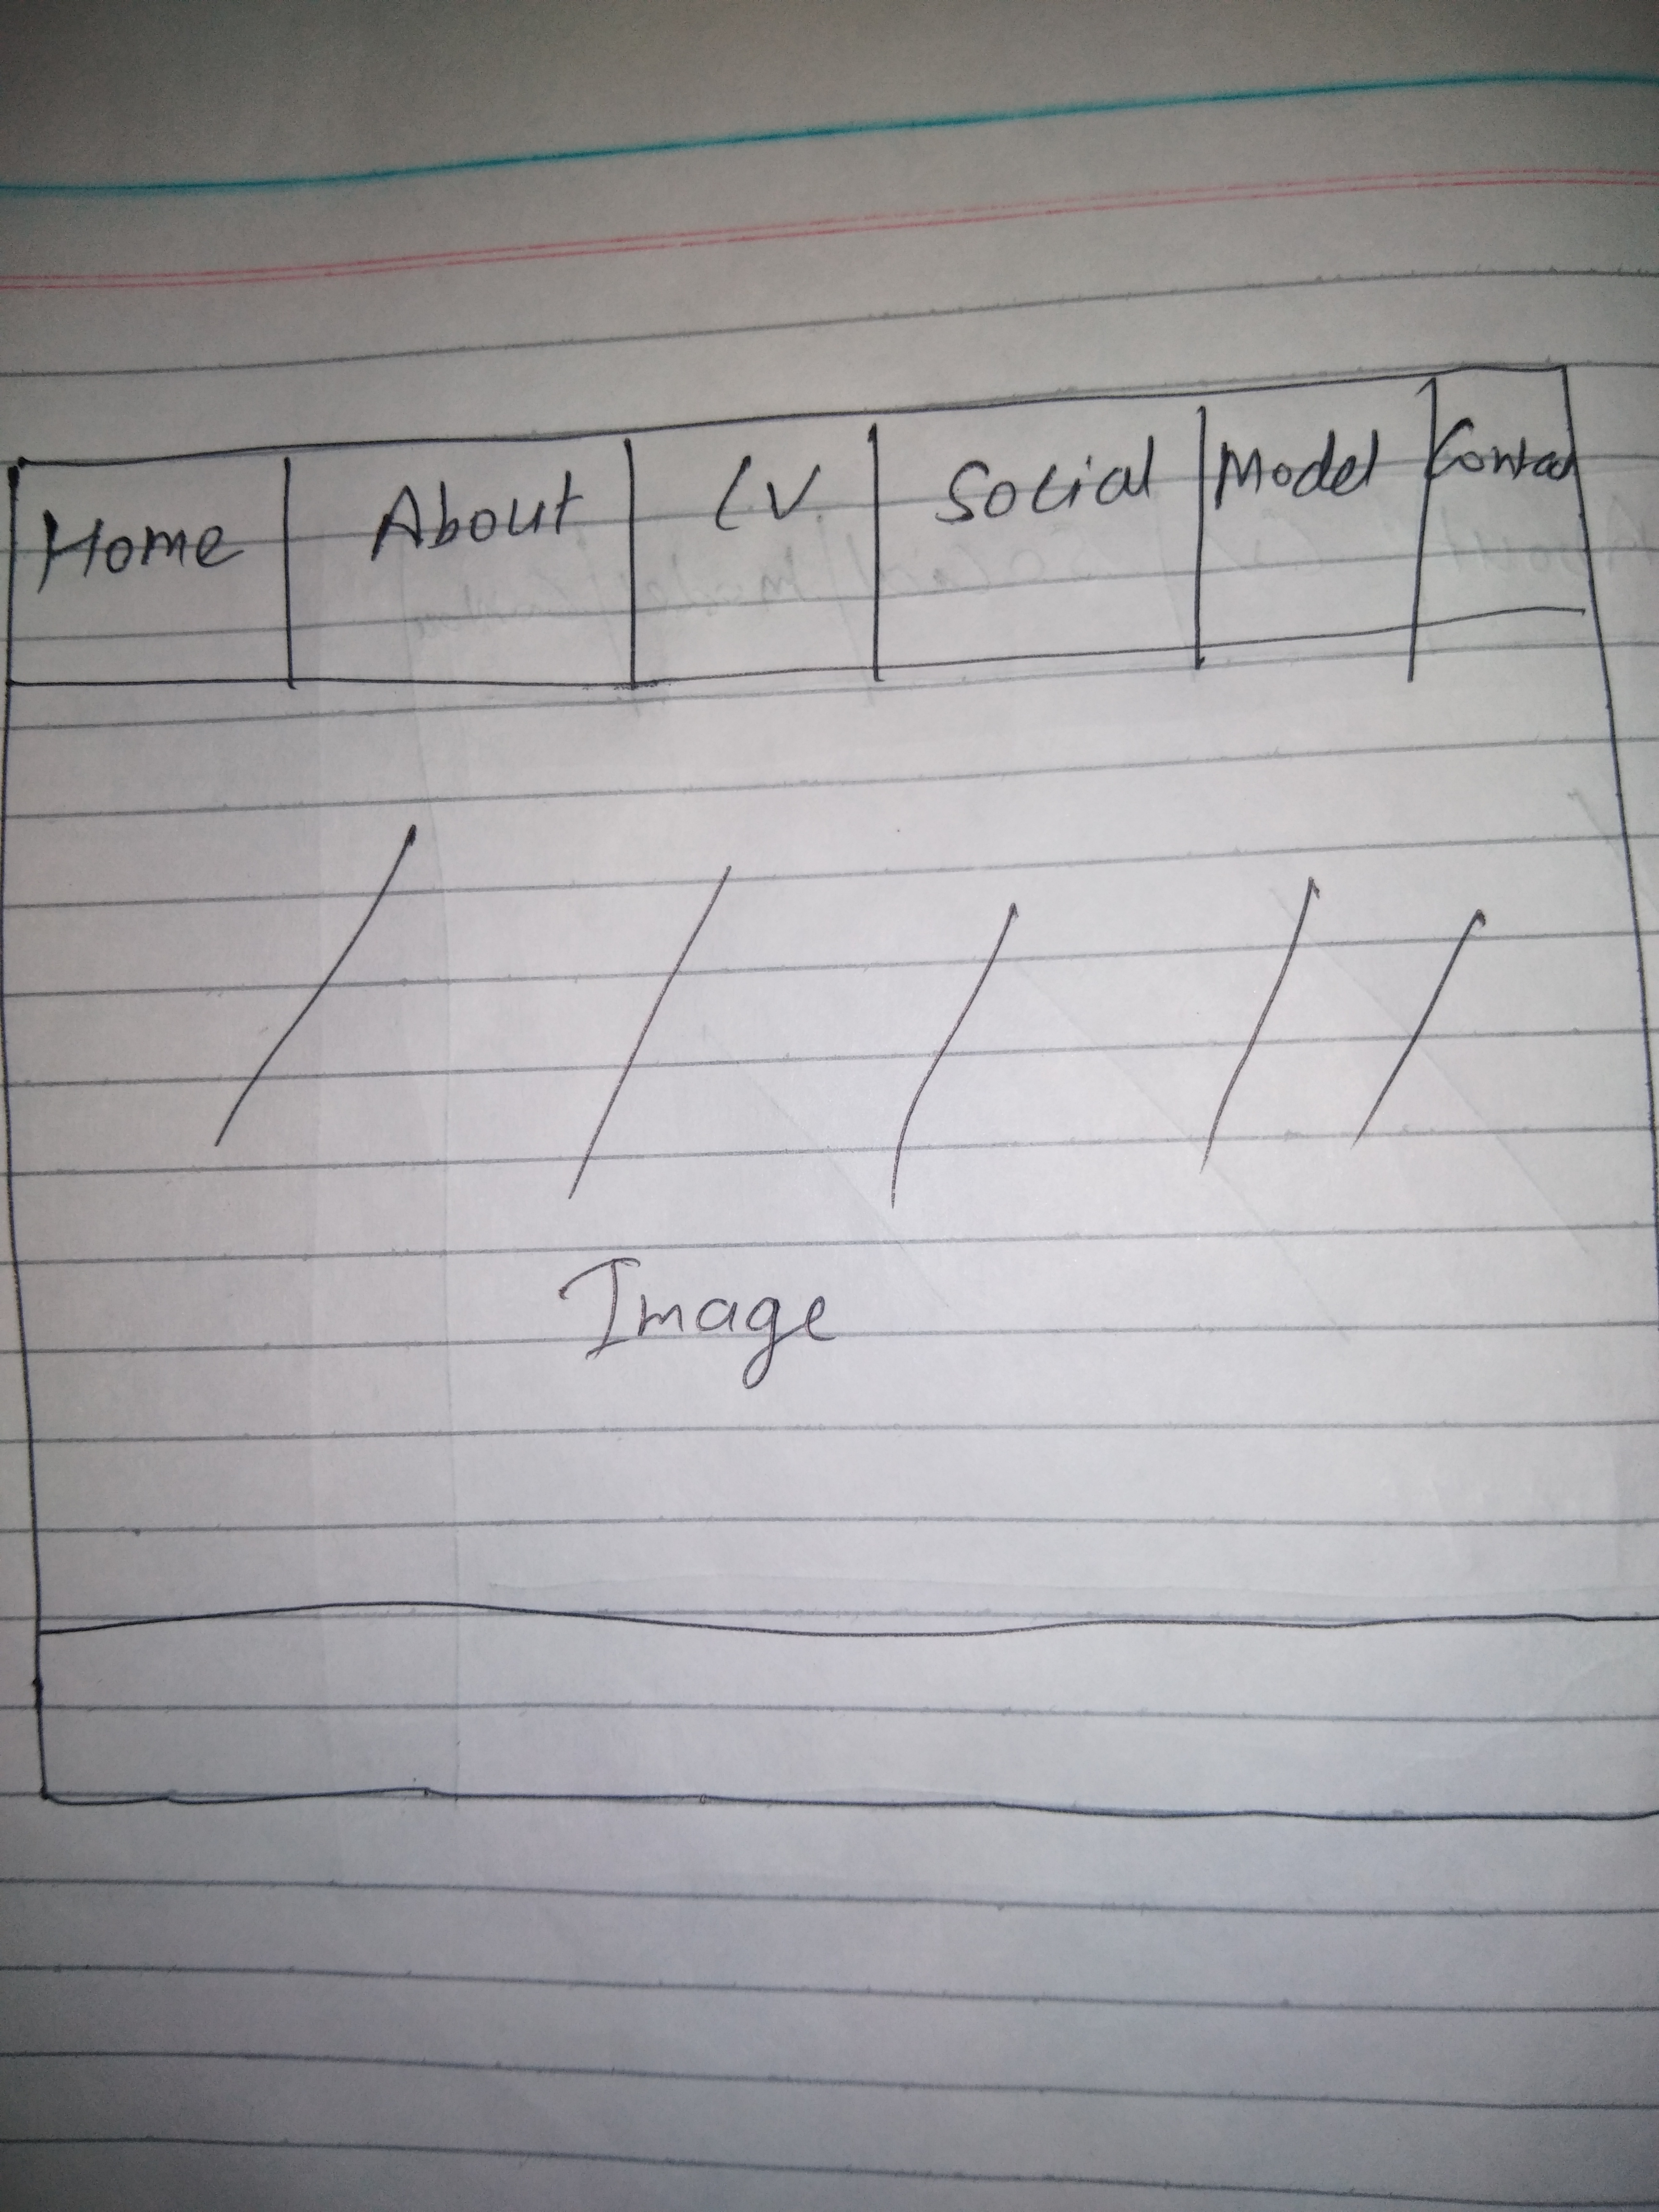 Home About CV Social Model Contac
Image